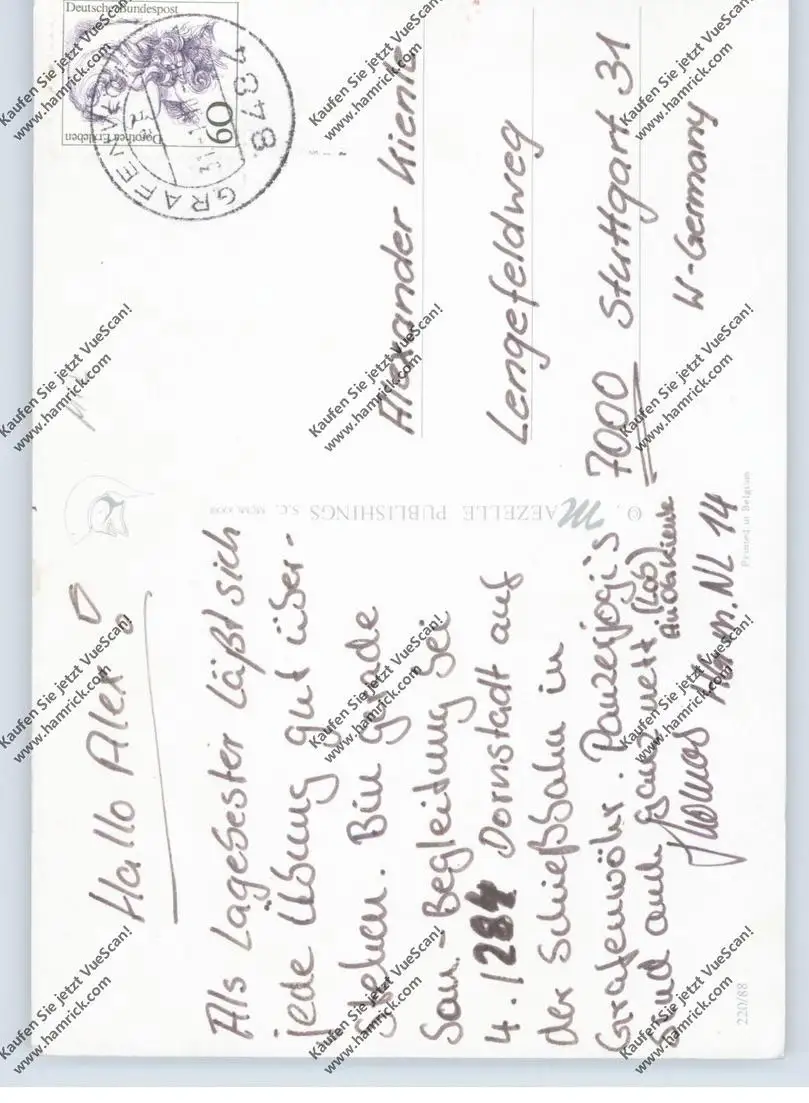 Hallo Alex!
Als Lagebester läßt sich
jede Übung gut über-
stehen. Bin gerade
San.-Begleitung bei
4./284 Dornstadt auf
der Schießbahn in
Grafenwöhr. Panzerjogis
sind auch ganz nett (Lob)
Thomas NL 14
Deutsche Bundespost
Dorothea Erxleben
60
8378 GRAFENWÖHR
Alexander Kienle
Lengefeldweg
7000 Stuttgart 31
W-Germany
© MAEZELLE PUBLISHINGS S.C.
Printed in Belgium
220/88
Kaufen Sie jetzt VueScan!
www.hamrick.com